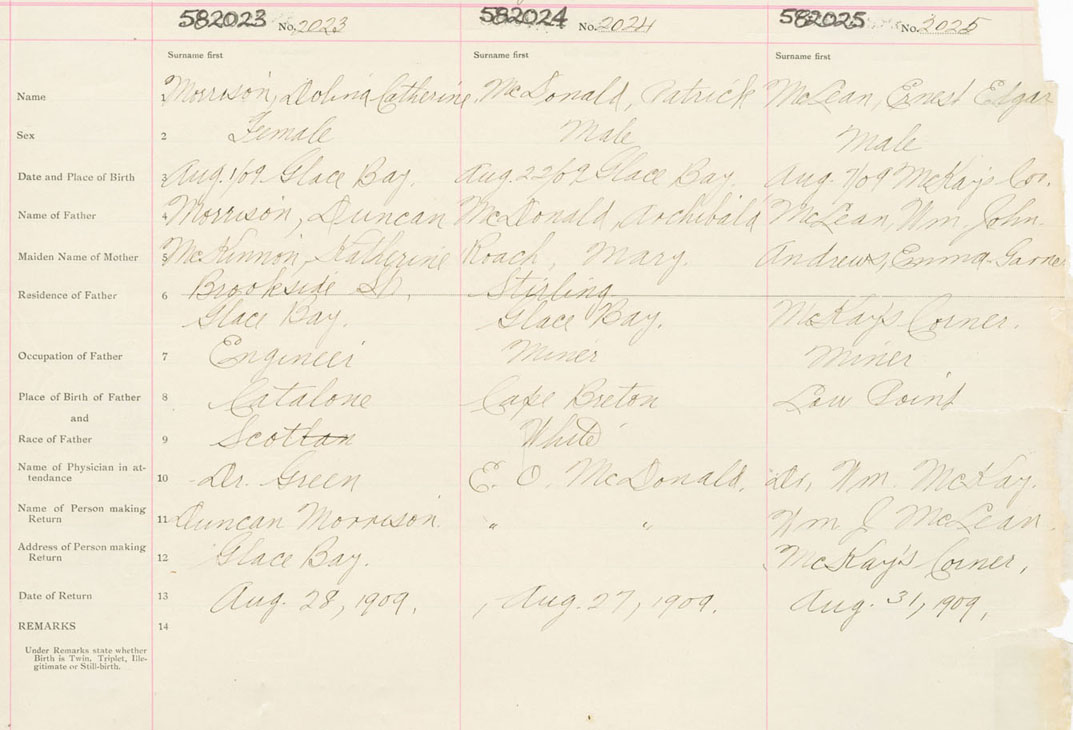 582023 No. 2023 582024 No. 2024 582025 No. 2025
Surname first Surname first Surname first
Name Morrison, Dolina Catherine. McDonald, Patrick McLean, Ernest Edgar
Sex 2 Female Male Male
Date and Place of Birth 3 Aug. 1/09 Glace Bay. Aug. 22/09 Glace Bay. Aug. 7/09 McKay's Cor.
Name of Father 4 Morrison, Duncan McDonald, Archibald McLean, Wm. John.
Maiden Name of Mother 5 McKinnon, Katherine Roach, Mary. Andrews, Emma
Residence of Father 6 Brookside St. Stirling
Glace Bay. Glace Bay. McKay's Corner.
Occupation of Father 7 Engineer Miner Miner
Place of Birth of Father 8 Catalone Cape Breton Low Point
and
Race of Father 9 Scottan White
Name of Physician in at-
tendance 10 Dr. Green E. O. McDonald. Dr. Wm. McKay.
Name of Person making
Return 11 Duncan Morrison. " " Wm J McLean.
Address of Person making
Return 12 Glace Bay. McKay's Corner.
Date of Return 13 Aug. 28, 1909. Aug. 27, 1909. Aug. 31, 1909.
REMARKS 14
Under Remarks state whether
Birth is Twin, Triplet, Ille-
gitimate or Still-birth.